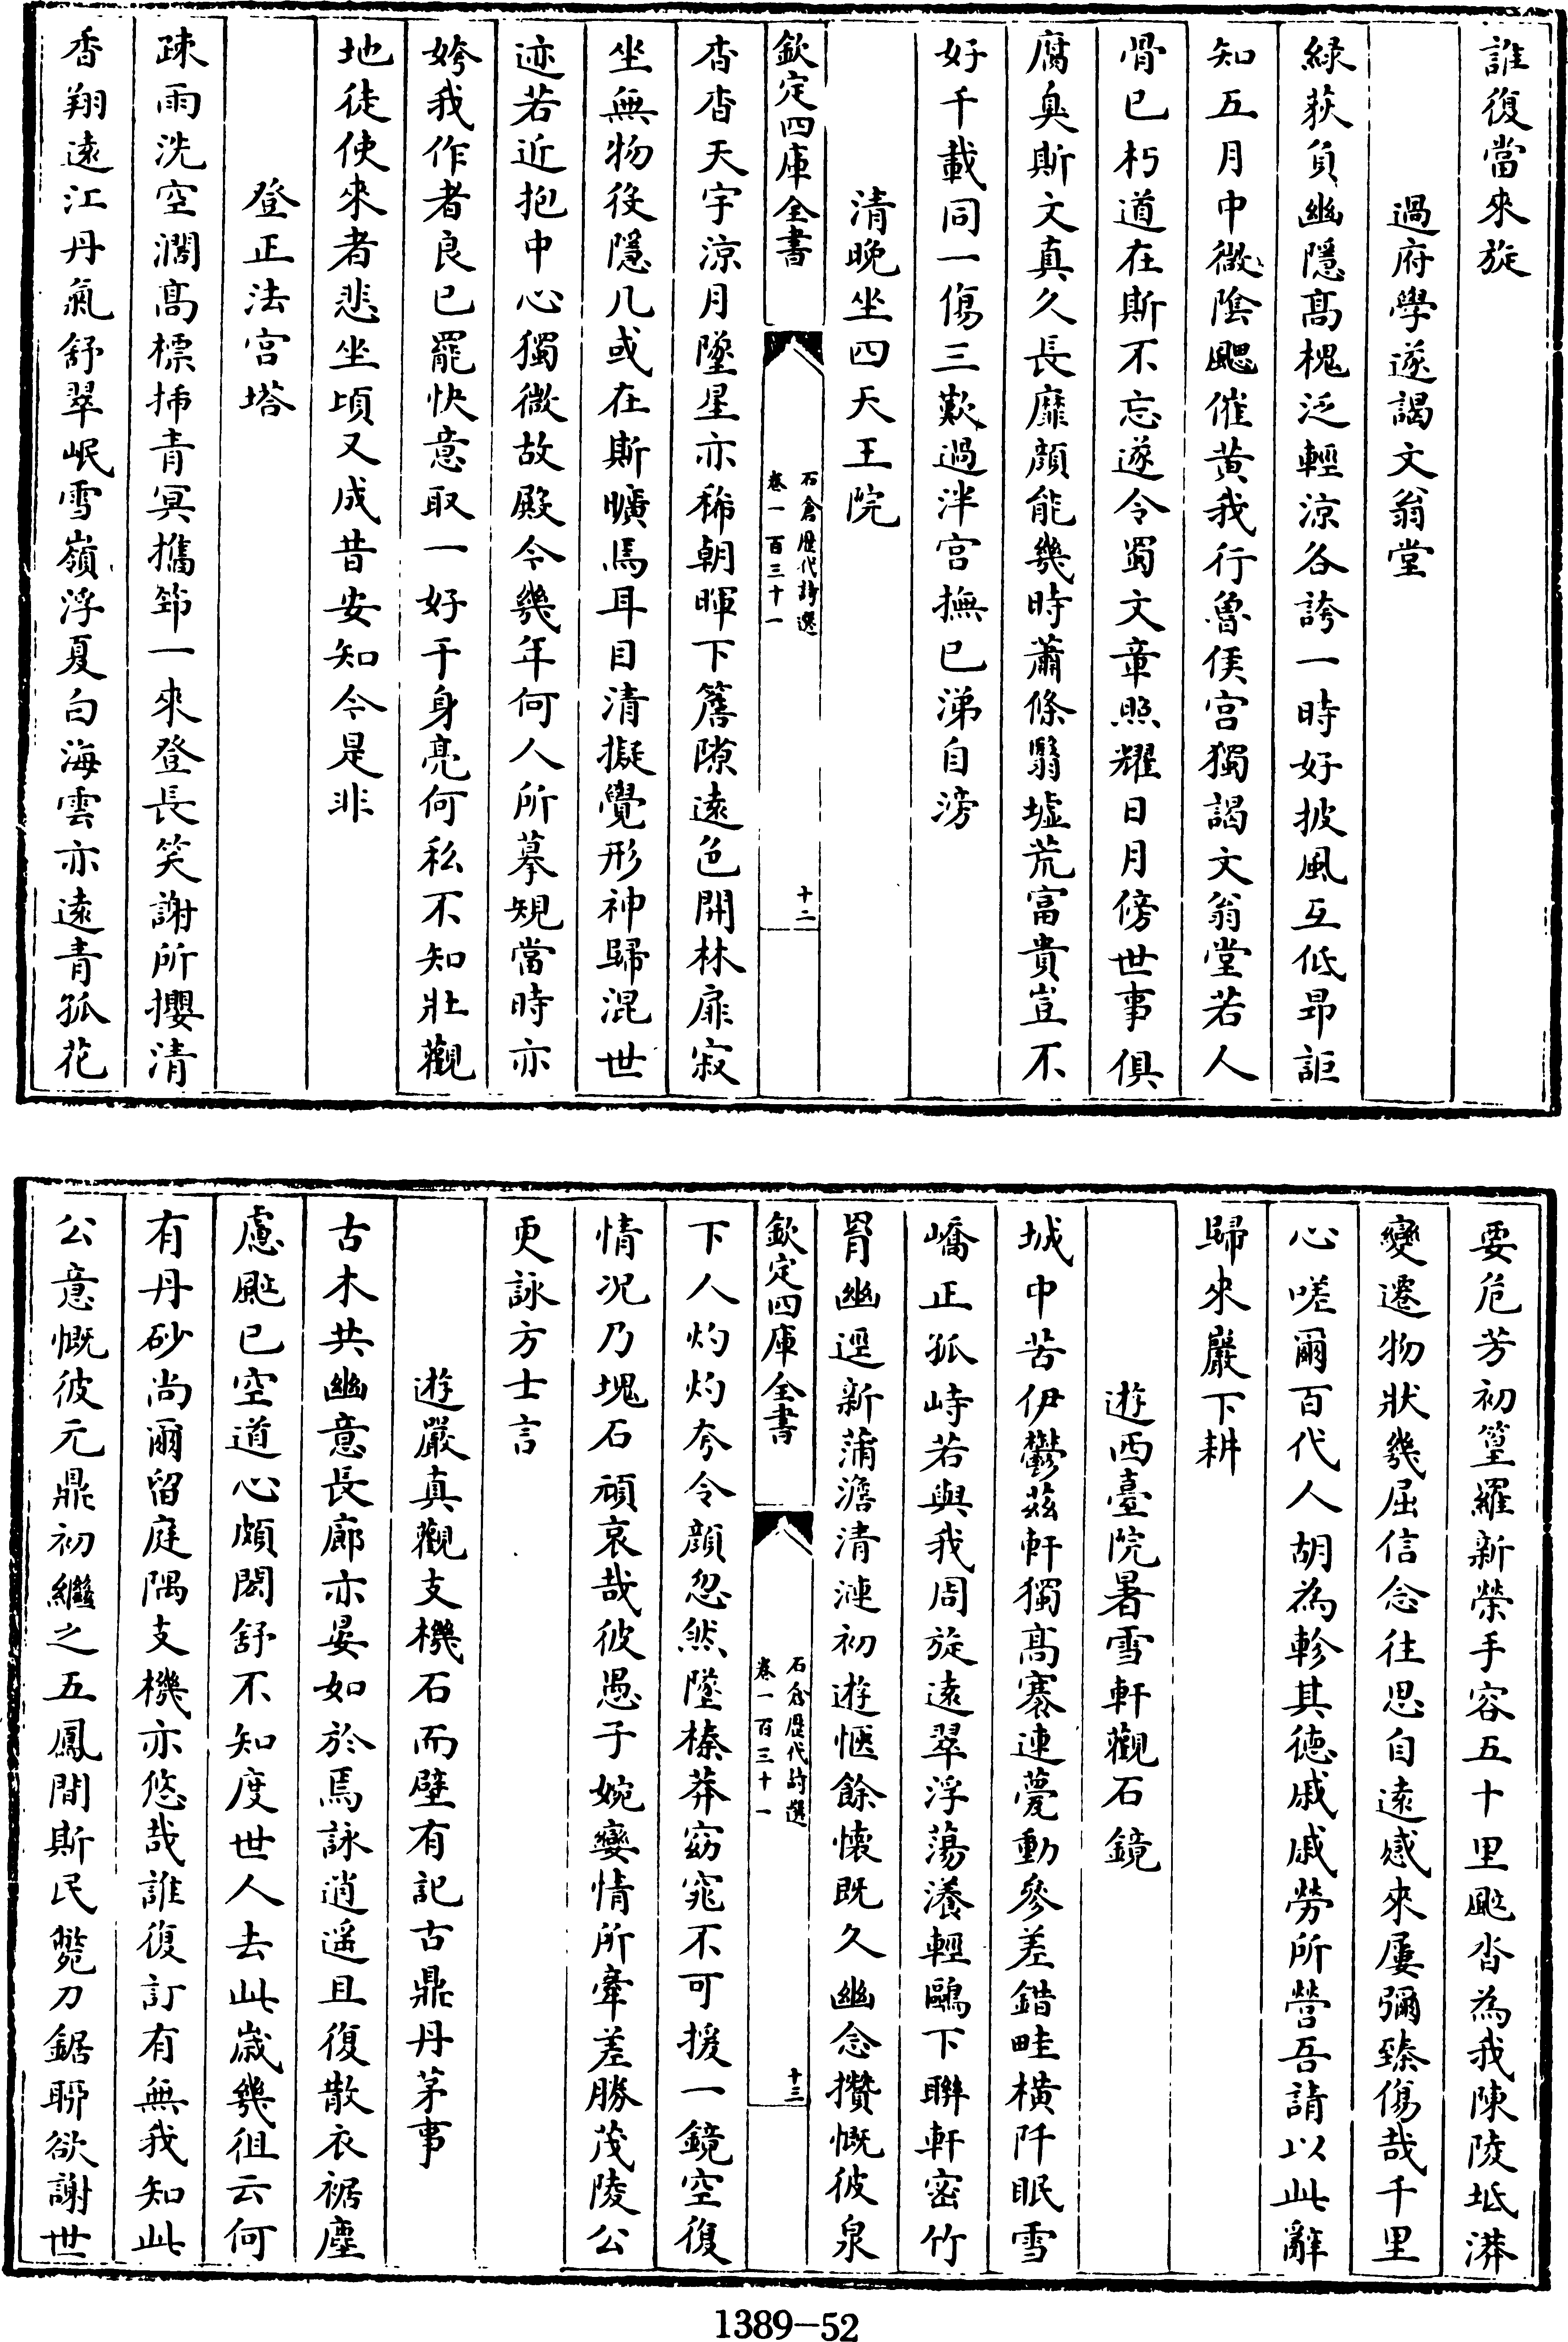 誰復當來旋
過府學遂謁文翁堂
緑荻負幽隱髙槐泛輕涼各誇一時好披風互低昻詎
知五月中微陰颸催黄我行魯侯宫獨謁文翁堂若人
骨已朽道在斯不忘遂令蜀文章照耀日月傍世事俱
腐臭斯文真久長靡顔能幾時蕭條翳墟荒富貴豈不
好千載同一傷三歎過泮宫撫已涕自滂
清晩坐四天王院
欽定四庫全書
石倉歴代詩選
卷一百三十一
十二
杳杳天宇涼月墜星亦稀朝暉下簷隙遠色開林扉寂
坐無物役隱几或在斯曠焉耳目清擬覺形神歸混世
迹若近抱中心獨微故殿今幾年何人所摹規當時亦
姱我作者良已罷快意取一好于身亮何私不知壯觀
地徒使來者悲坐頃又成昔安知今是非
登正法宫塔
疎雨洗空濶髙標拂青冥攜筇一來登長笑謝所攖清
香翔遠江丹氣舒翠岷雪嶺浮夏白海雲亦遠青孤花
要危芳初篁羅新榮手容五十里颫沓為我陳陵坻漭
變遷物狀幾屈信念往思自遠感來屢彌臻傷哉千里
心嗟爾百代人胡為軫其徳戚戚勞所營吾請以此辭
歸來巖下耕
遊西臺院暑雪軒觀石鏡
城中苦伊鬱茲軒獨髙褰連甍動參差錯畦横阡眠雪
嶠正孤峙若與我周旋遠翠浮蕩瀁輕鷗下聯軒宻竹
罥幽逕新蒲澹清漣初遊愜餘懐既久幽念攢慨彼泉
欽定四庫全書
石倉歴代詩選
卷一百三十一
十三
下人灼灼夸令顔忽然墜榛莽窈窕不可援一鏡空復
情况乃塊石頑哀哉彼愚子婉孌情所牽差勝茂陵公
更詠方士言
遊嚴真觀支機石而壁有記古鼎丹茅事
古木共幽意長廊亦晏如於焉詠逍遥且復散衣裾塵
慮颫已空道心頗閎舒不知度世人去此歳幾徂云何
有丹砂尚爾留庭隅支機亦悠哉誰復訂有無我知此
公意慨彼元鼎初繼之五鳳間斯民斃刀鋸聊欲謝世
1389-52